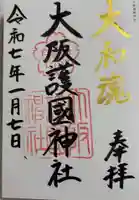 大和魂
奉拝
大阪護國神社
令和七年一月七日